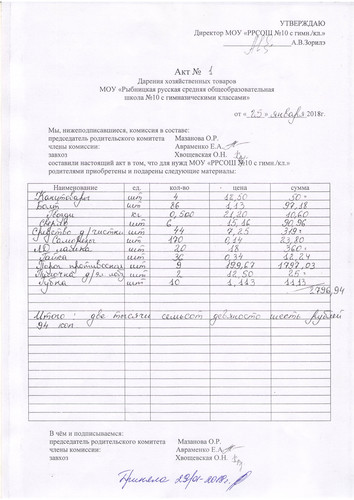 УТВЕРЖДАЮ
Директор МОУ «РРСОШ №10 с гимн./кл.»
А.В.Зорилэ
Акт № 1
Дарения хозяйственных товаров
МОУ «Рыбницкая русская средняя общеобразовательная
школа №10 с гимназическими классами»
от « 25 » января 2018г.
Мы, нижеподписавшиеся, комиссия в составе:
председатель родительского комитета Мазанова О.Р.
члены комиссии: Авраменко Е.А.
завхоз Хвощевская О.Н.
составили настоящий акт в том, что для нужд МОУ «РРСОШ №10 с гимн./кл.»
родителями приобретены и подарены следующие материалы:
Наименование ед. кол-во цена сумма
Канцтовары шт 4 12,50 50=
Болт шт 86 1,13 97,18
Гвозди кг 0,500 21,20 10,60
Сверло шт 6 15,16 90,96
Средство д/чистки шт 44 7,25 319=
Саморезы шт 170 0,14 23,80
шт 20 18 360=
Гайка шт 36 0,34 12,24
шт 9 199,67 1797,03
шт 2 12,50 25=
Губка шт 10 1,113 11,13
2796,94
Итого: две тысячи семьсот девяносто шесть рублей
94 коп
В чём и подписываемся:
председатель родительского комитета Мазанова О.Р.
члены комиссии: Авраменко Е.А.
завхоз Хвощевская О.Н.
Приняла